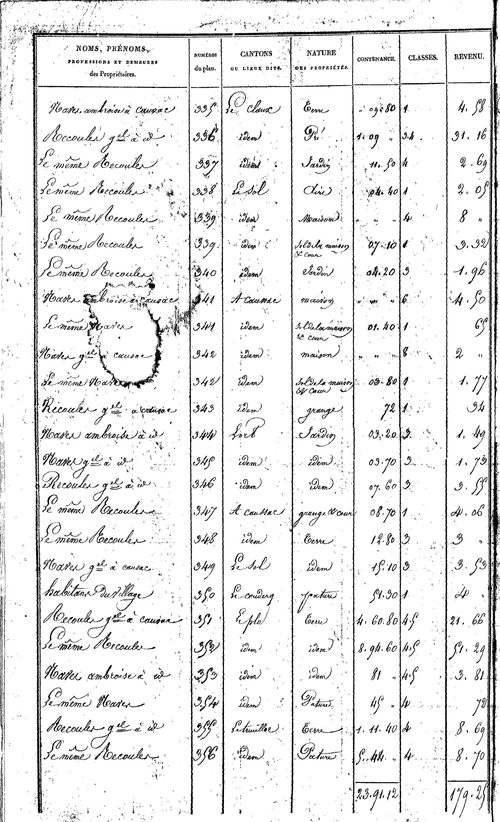 NOMS, PRÉNOMS, PROFESSIONS ET DEMEURES des Propriétaires. NUMÉROS du plan. CANTONS OU LIEUX DITS. NATURE DES PROPRIÉTÉS. CONTENANCE. CLASSES. REVENU.
Naves ambroise à caussac 335 Le Claux Terre " 09 80 1 4. 58
Recouler g.el à id 336 idem Pré 1. 09 " 3.4 31. 16
Le même Recouler 337 idem Jardin 11. 50 4 2. 69
Le même Recouler 338 Le Sol 04. 40 1 2. 05
Le même Recouler 339 idem Maison " " " 4 8 "
Le même Recouler 339 idem Sol de la maison & cour 07. 10 1 3. 32
Le même Recouler 340 idem Jardin 04. 20 3 1. 96
Naves ambroise à caussac 341 A Caussac maison " " " 6 4. 50
Le même Naves 341 idem Sol de la maison & cour 01. 40 1 65
Naves g.el à caussac 342 idem maison " " " 8 2 "
Le même Naves 342 idem Sol de la maison & cour 03. 80 1 1. 77
Recouler g.el à caussac 343 idem grange 72 1 34
Naves ambroise à id 344 Jardin 03. 20 3 1. 49
Naves g.el à id 345 idem idem 03. 70 3 1. 73
Recouler g.el à id 346 idem idem 07. 60 3 3. 55
Le même Recouler 347 A caussac grange & cour 08. 70 1 4. 06
Le même Recouler 348 idem Terre 12. 80 3 3 "
Naves g.el à caussac 349 Le Sol idem 15. 10 3 3. 53
habitans du Village 350 Le Couderg pature 51. 30 1 4 "
Recouler g.el à caussac 351 Terre 4. 60. 80 4.5 21. 66
Le même Recouler 352 idem idem 8. 94. 60 4.5 51. 29
Naves ambroise à id 353 idem idem 81 " 4.5 3. 81
Le même Naves 354 idem Pature 45 " 4 72
Recouler g.el à id 355 Terre 1. 11. 40 4 8. 69
Le même Recouler 356 idem Pature 5. 44 " 4 8. 70
23. 91. 12 179. 25